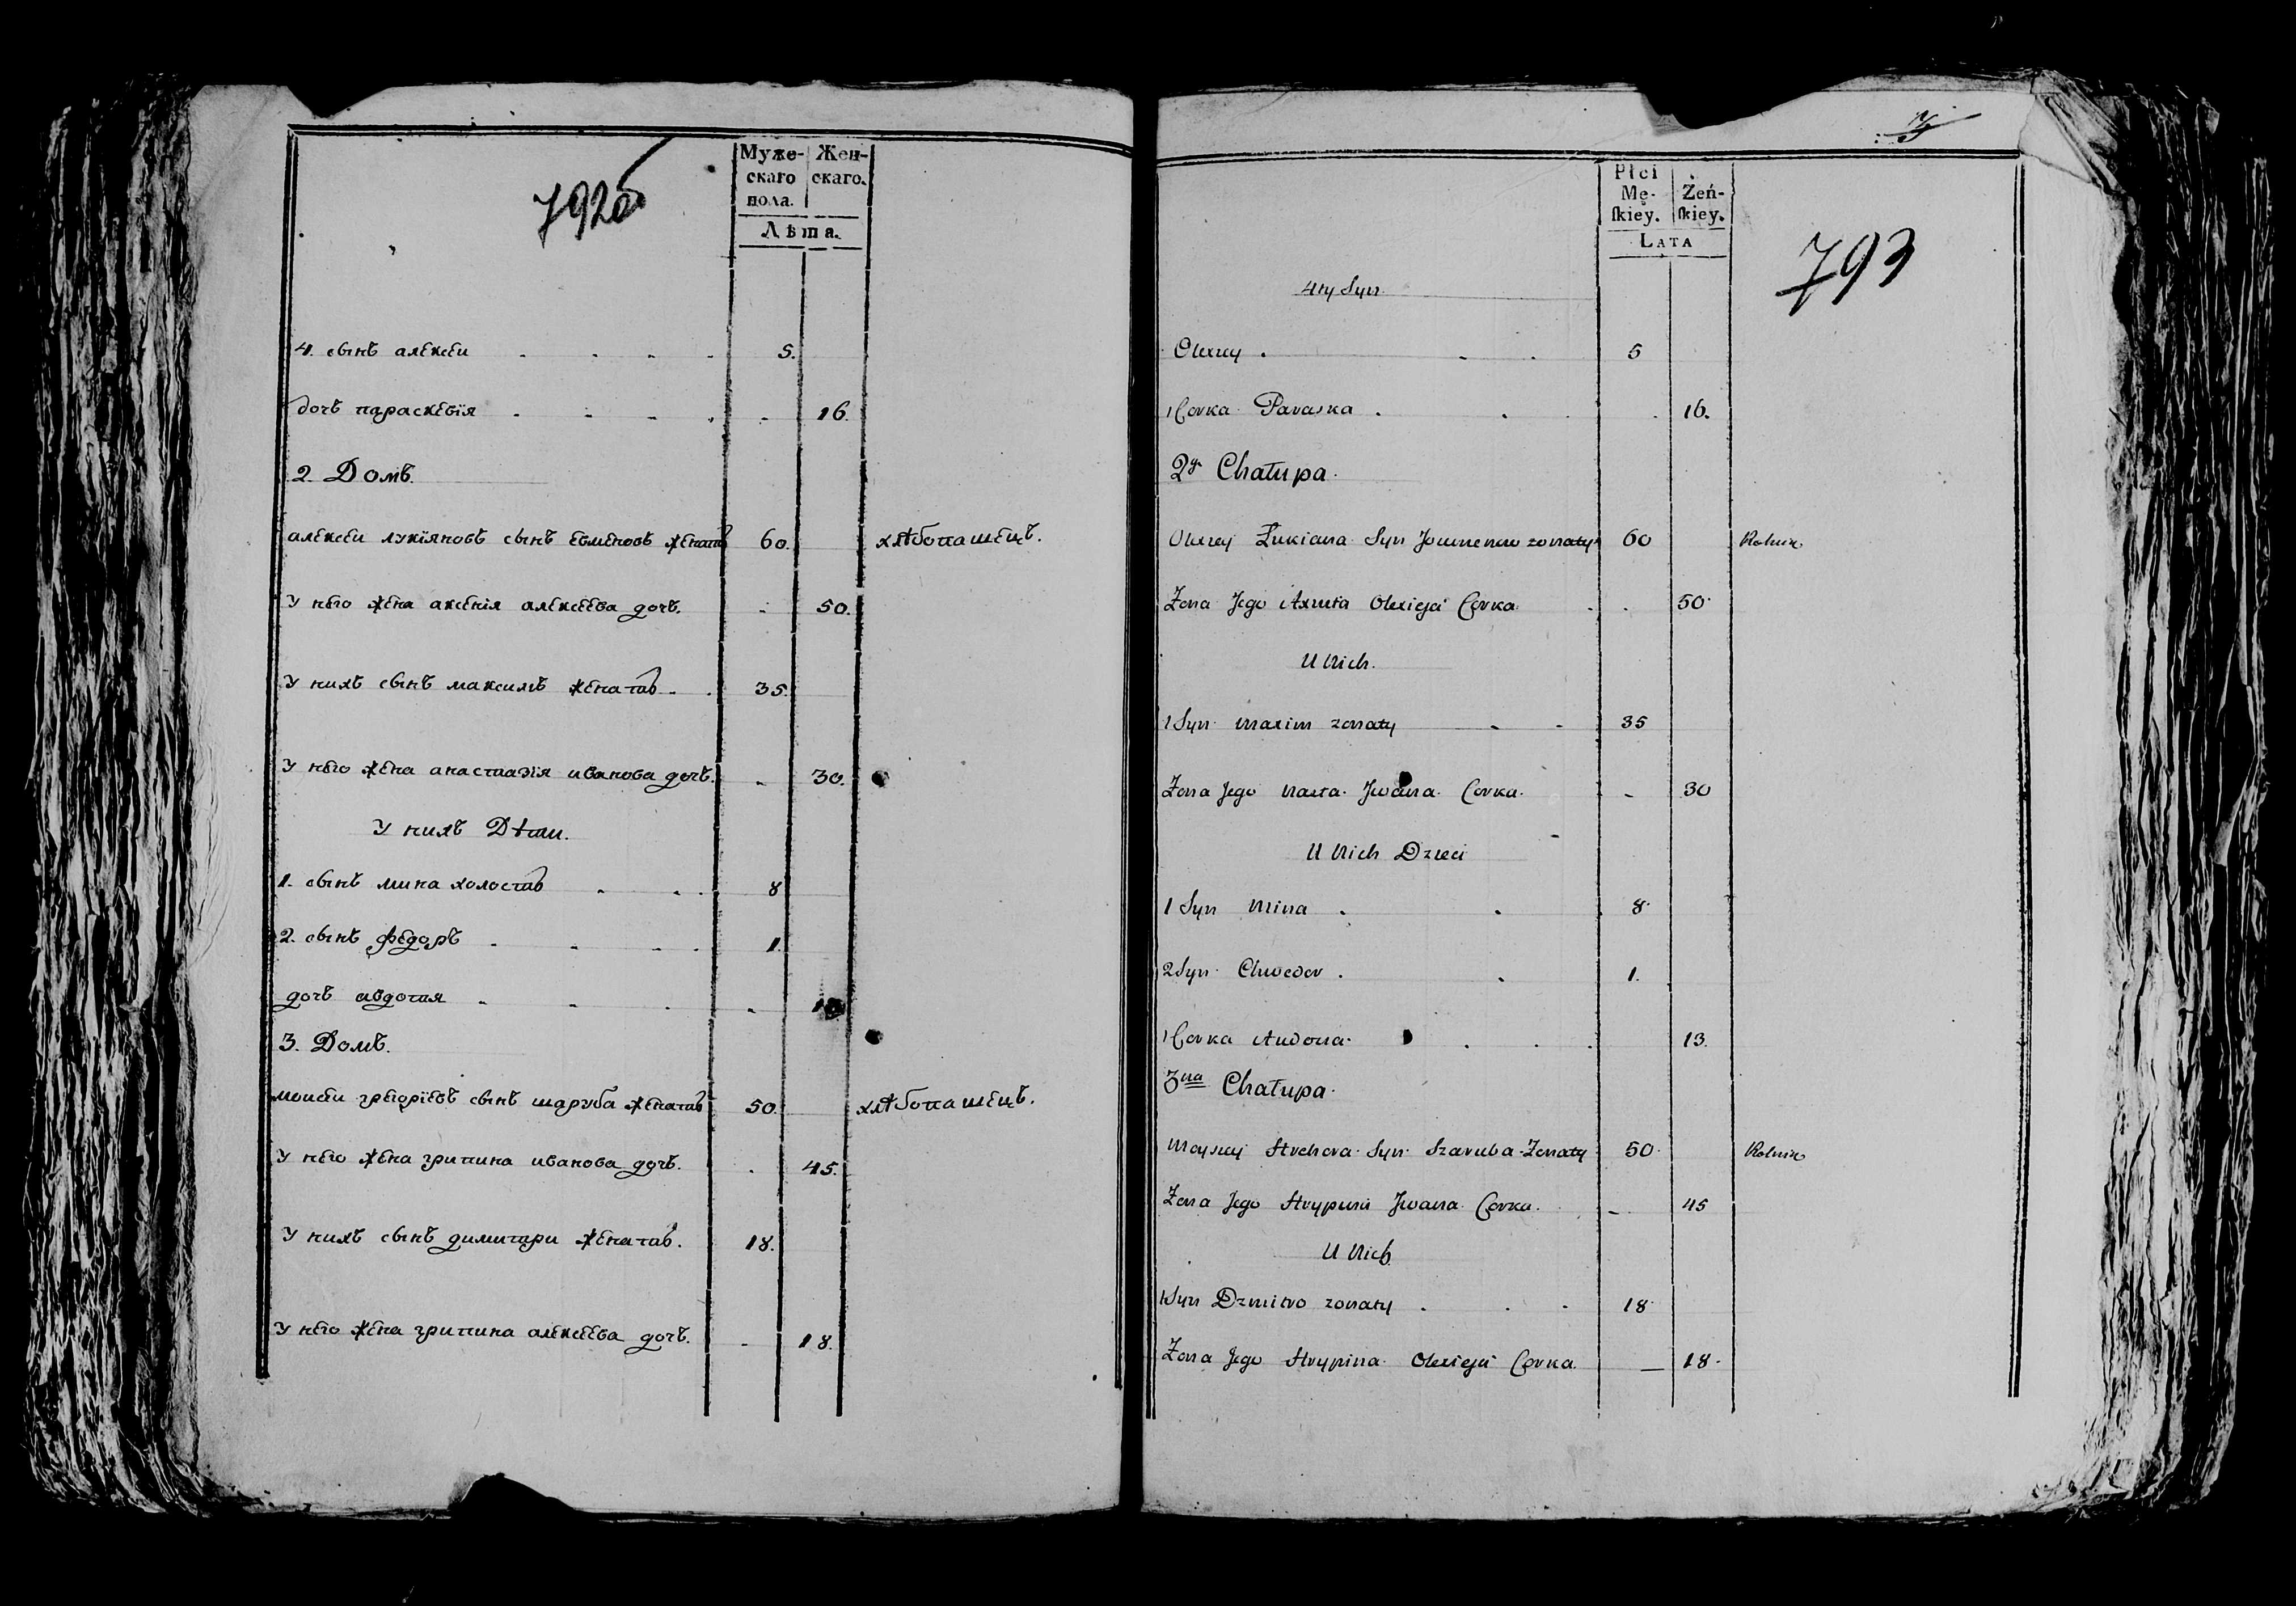 792об
Муже- Жен-
скаго скаго.
пола.
Лѣта.
4. сынъ алеѯеи 5.
дочь параскевїя 16.
2. Домъ.
алеѯеи лукїяновъ сынъ евменовъ женатъ 60. хлѣбопашецъ.
У него жена аксенїя алексеева дочь. 50.
У нихъ сынъ максимъ женатъ 35.
У него жена анастазїя иванова дочь. 30.
У нихъ Дѣти.
1. сынъ мина холостъ 8
2. сынъ федоръ 1.
дочь авдотия
3. Домъ.
моисеи григорїевъ сынъ шаруба женатъ 50. хлѣбопашецъ.
У него жена грипина иванова дочь. 45.
У нихъ сынъ димитри женатъ. 18.
У него жена грипина алексеева дочь. 18.
Płci
Mę- Żeń-
skiey. skiey.
LATA
793
4ty Syn
Olexiey 5
1 Corka Paraska 16.
2ga Chałupa.
Olexiej Łukiana Syn żonaty 60 Rolnik
Żona Jego Olexieja Corka 50
U Nich.
1 Syn Maxim żonaty 35
Żona Jego Nasta Jwana Corka. 30
U Nich Dzieci
1 Syn Mina 8
2 Syn Chwedor 1.
1 Corka Audotia 13.
3cia Chałupa.
Moysiej Syn Szaruba Żonaty 50 Rolnik
Żona Jego Hrypina Jwana Corka. 45
U Nich
1 Syn Dzmitro żonaty 18
Żona Jego Hrypina Olexieja Corka 18